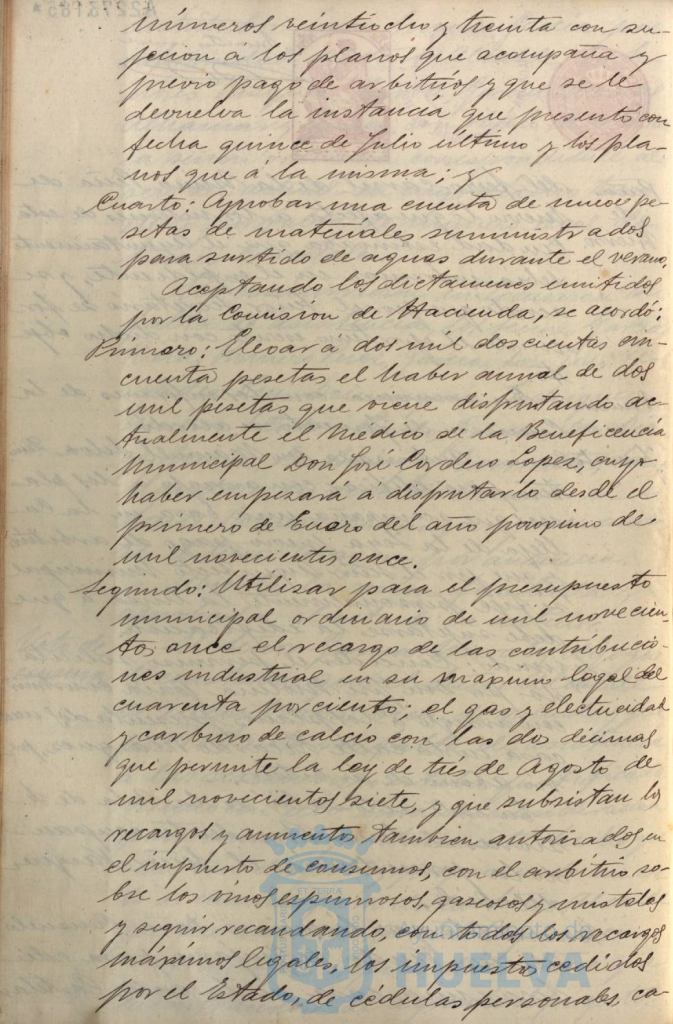 números veintiocho y treinta con su-
jecion á los planos que acompaña y
previo pago de arbitrios y que se le
devuelva la instancia que presentó con
fecha quince de Julio último y los pla-
nos que á la misma; y
Cuarto: Aprobar una cuenta de nueve pe-
setas de materiales suministrados
para surtido de aguas durante el verano.
Aceptando los dictamenes emitidos
por la Comisión de Hacienda, se acordó:
Primero: Elevar á dos mil doscientas cin-
cuenta pesetas el haber anual de dos
mil pesetas que viene disfrutando ac-
tualmente el Médico de la Beneficencia
Municipal Don José Cordero Lopez, cuyo
haber empezará á disfrutarlo desde el
primero de Enero del año proximo de
mil novecientos once.
Segundo: Utilizar para el presupuesto
municipal ordinario de mil novecien-
tos once el recargo de las contribucio-
nes industrial en su máximo legal del
cuarenta por ciento; el gas y electricidad
y carburo de calcio con las dos décimas
que permite la ley de trés de Agosto de
mil novecientos siete, y que subsistan los
recargos y aumentos tambien autorizados en
el impuesto de consumos, con el arbitrio so-
bre los vinos espumosos, gaseosos y mistelas
y seguir recaudando, con todos los recargos
máximos legales, los impuestos cedidos
por el Estado, de cédulas personales, ca-
HUELVA